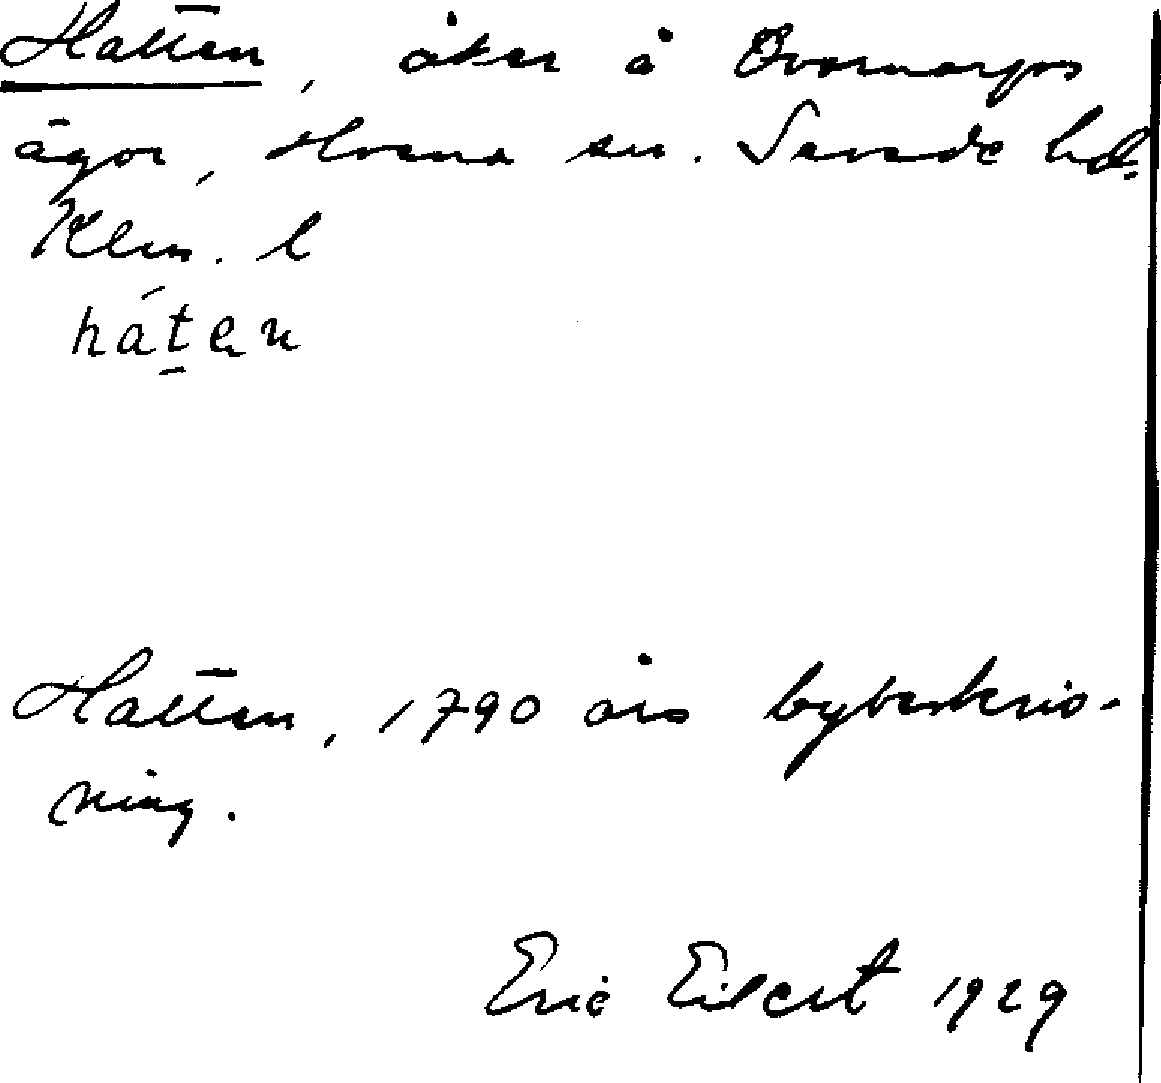 Hatten, åker å Kvarnarps
ägor, Hvena sn. Sevede hd.
Klm. l
háten
Hatten, 1790 års bybeskriv-
ning.
Eric Eilert 1929